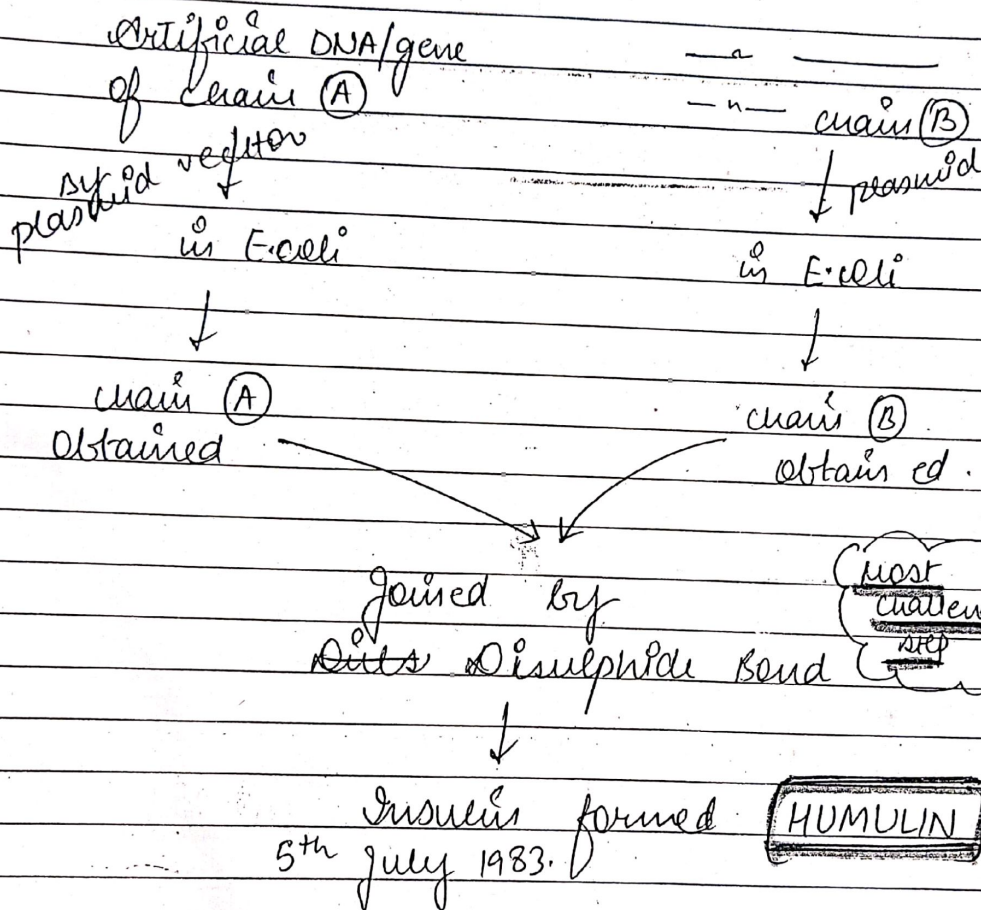 Artificial DNA/gene
of chain Ⓐ
— " — chain Ⓑ
By plasmid vector
plasmid
in E.coli
in E.coli
chain Ⓐ
obtained
chain Ⓑ
obtained.
Joined by
Disulphide Bond
Most
Challen
step
Insulin formed
HUMULIN
5th July 1983.